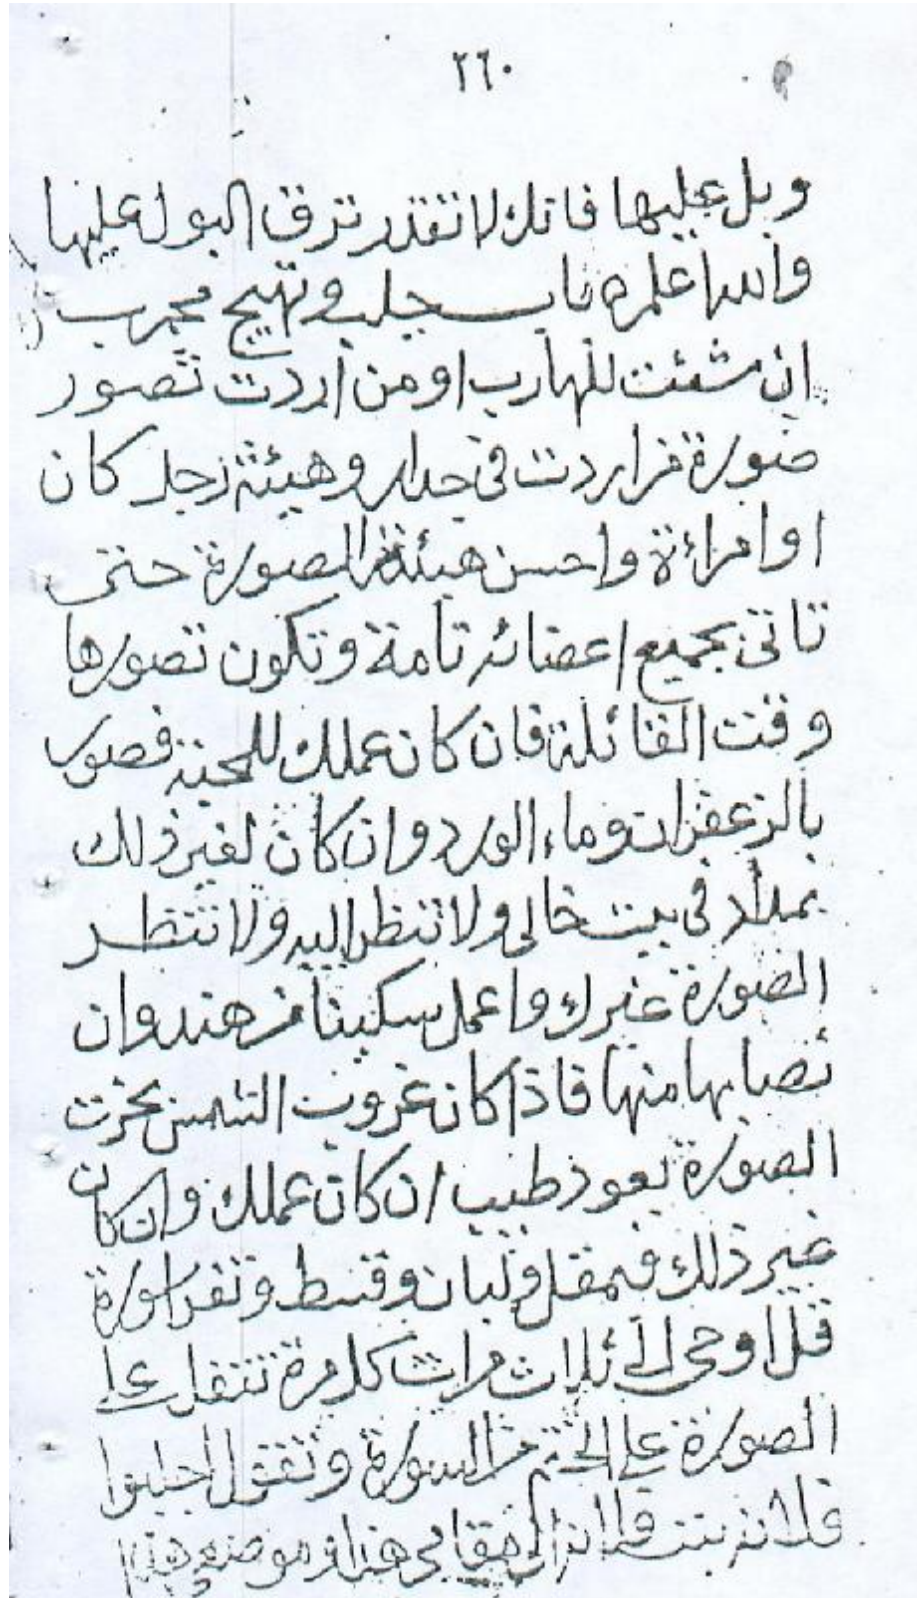 ٢٦٠
وبل عليها فانك لا تقدر ترق البول عليها
والله اعلم ه باب جلب وتهيج مجرب
ان شئت للهارب او من اردت تصور
صورة من اردت في جدار وهيئة رجل كان
او امراءة واحسن هيئة الصورة حتى
تاتى بجميع اعضائه تامة وتكون تصورها
وقت القائلة فان كان عملك للمحبة فصور
بالزعفران وماء الورد وان كان لغير ذلك
بمداد في بيت خالى ولا تنظر اليه ولا تنتظر
الصورة غيرك واعمل سكينا من هندوان
نصابها منها فاذا كان غروب الشمس بخرت
الصورة بعود طيب ان كان عملك وان كان
غير ذلك فمقل ولبان وقسط وتقرا سورة
قل اوحى الي ثلاث مرات كل مرة تتفل على
الصورة على الختم من السورة وتقول اجلبوا
فلانة بنت فلانة الى مقامي هذا وموضعي هذا